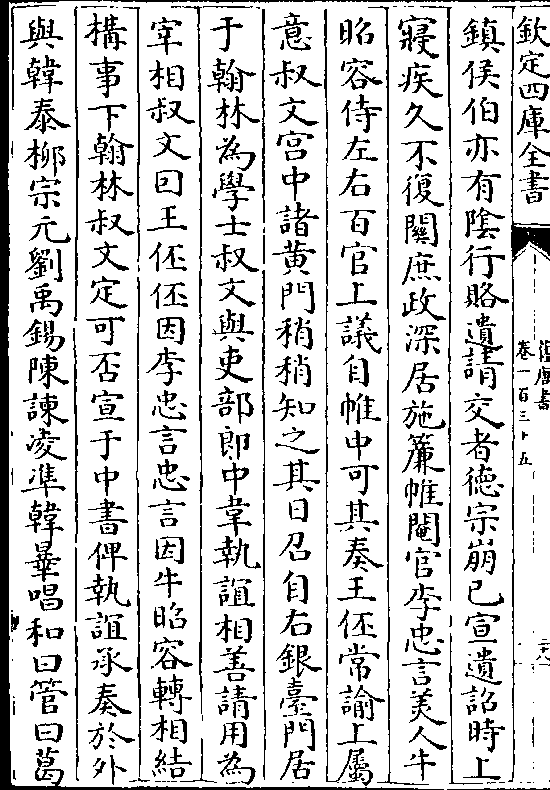 欽定四庫全書
舊唐書
卷一百三十五
鎮侯伯亦有隂行賂遺請交者徳宗崩已宣遺詔時上
寢疾久不復關庶政深居施簾帷閹官李忠言美人牛
昭容侍左右百官上議自帷中可其奏王伾常諭上屬
意叔文宫中諸黄門稍稍知之其日召自右銀臺門居
于翰林為學士叔文與吏部郎中韋執誼相善請用為
宰相叔文因王伾伾因李忠言忠言因牛昭容轉相結
構事下翰林叔文定可否宣于中書俾執誼承奏於外
與韓泰栁宗元劉禹錫陳諫凌準韓曅唱和曰管曰葛